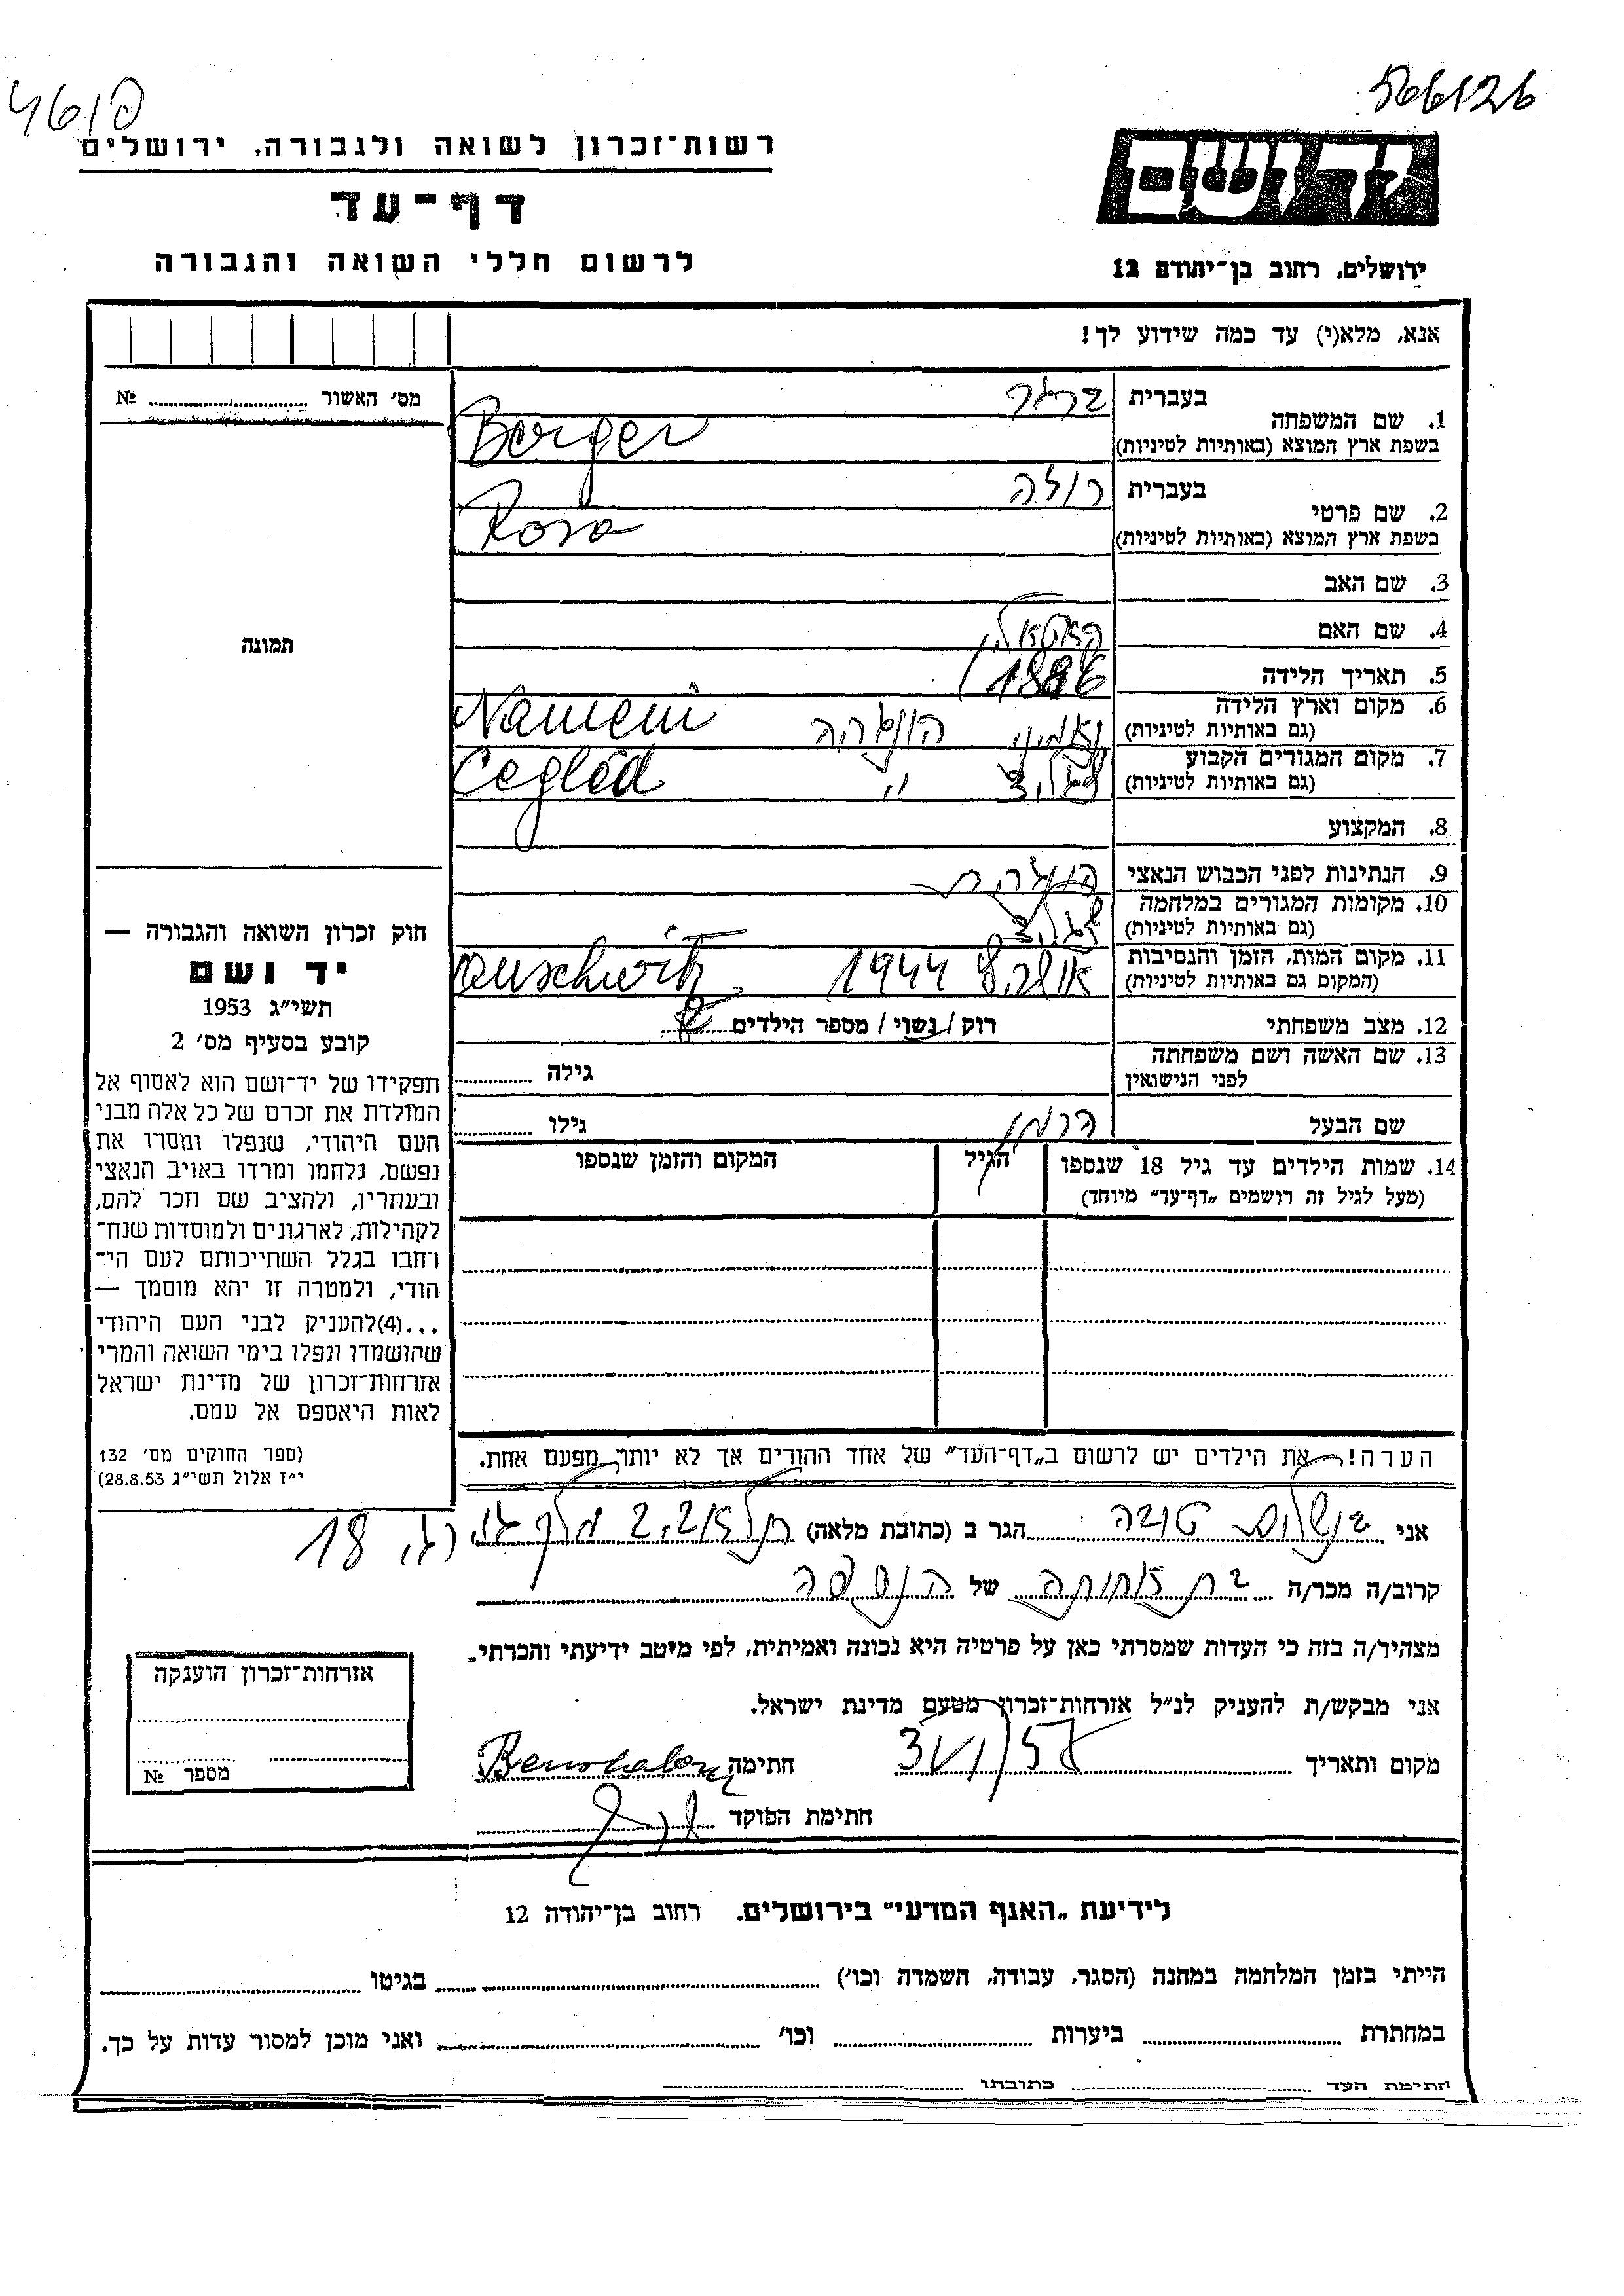 פ/461
566126
רשות־זכרון לשואה ולגבורה, ירושלים
דף־עד
לרשום חללי השואה והגבורה
יד ושם
ירושלים, רחוב בן־יהודה 12
אנא, מלא(י) עד כמה שידוע לך!
מס׳ האשור № ..........
תמונה
1. שם המשפחה
בעברית ברגר
בשפת ארץ המוצא (באותיות לטיניות) Berger
2. שם פרטי
בעברית רוזה
בשפת ארץ המוצא (באותיות לטיניות) Rosa
3. שם האב
4. שם האם
5. תאריך הלידה
6. מקום וארץ הלידה
(גם באותיות לטיניות) נאמיני הונגריה Naméni
7. מקום המגורים הקבוע
(גם באותיות לטיניות) צגליד " Cegléd
8. המקצוע
9. הנתינות לפני הכבוש הנאצי הונגרית
10. מקומות המגורים במלחמה
(גם באותיות לטיניות) צגליד
11. מקום המות, הזמן והנסיבות
(המקום גם באותיות לטיניות) אושביץ 1944 Auschwitz
12. מצב משפחתי רוק/נשוי/מספר הילדים
13. שם האשה ושם משפחתה
לפני הנישואין גילה
שם הבעל הרמן גילו
14. שמות הילדים עד גיל 18 שנספו הגיל המקום והזמן שנספו
(מעל לגיל זה רושמים „דף־עד” מיוחד)
חוק זכרון השואה והגבורה —
יד ושם
תשי״ג 1953
קובע בסעיף מס׳ 2
תפקידו של יד־ושם הוא לאסוף אל
המולדת את זכרם של כל אלה מבני
העם היהודי, שנפלו ומסרו את
נפשם, נלחמו ומרדו באויב הנאצי
ובעוזריו, ולהציב שם וזכר להם,
לקהילות, לארגונים ולמוסדות שנח־
רחבו בגלל השתייכותם לעם הי־
הודי, ולמטרה זו יהא מוסמך —
...(4)להעניק לבני העם היהודי
שהושמדו ונפלו בימי השואה והמרי
אזרחות־זכרון של מדינת ישראל
לאות היאספם אל עמם.
(ספר החוקים מס׳ 132
י״ז אלול תשי״ג 28.8.53)
הערה! את הילדים יש לרשום ב„דף־העד” של אחד ההורים אך לא יותר מפעם אחת.
אני בנשלום טובה הגר ב (כתובת מלאה) תל אביב 18
קרוב/ה מכר/ה בת אחותה של הנספה
מצהיר/ה בזה כי העדות שמסרתי כאן על פרטיה היא נכונה ואמיתית, לפי מיטב ידיעתי והכרתי.
אני מבקש/ת להעניק לנ״ל אזרחות־זכרון מטעם מדינת ישראל.
מקום ותאריך חתימה Benshalom
חתימת הפוקד
אזרחות־זכרון הוענקה
מספר №
לידיעת „האגף המדעי” בירושלים. רחוב בן־יהודה 12
הייתי בזמן המלחמה במחנה (הסגר, עבודה, השמדה וכו׳) .......... בגיטו ..........
במחתרת .......... ביערות .......... וכו׳ .......... ואני מוכן למסור עדות על כך.
חתימת העד .......... כתובתו ..........